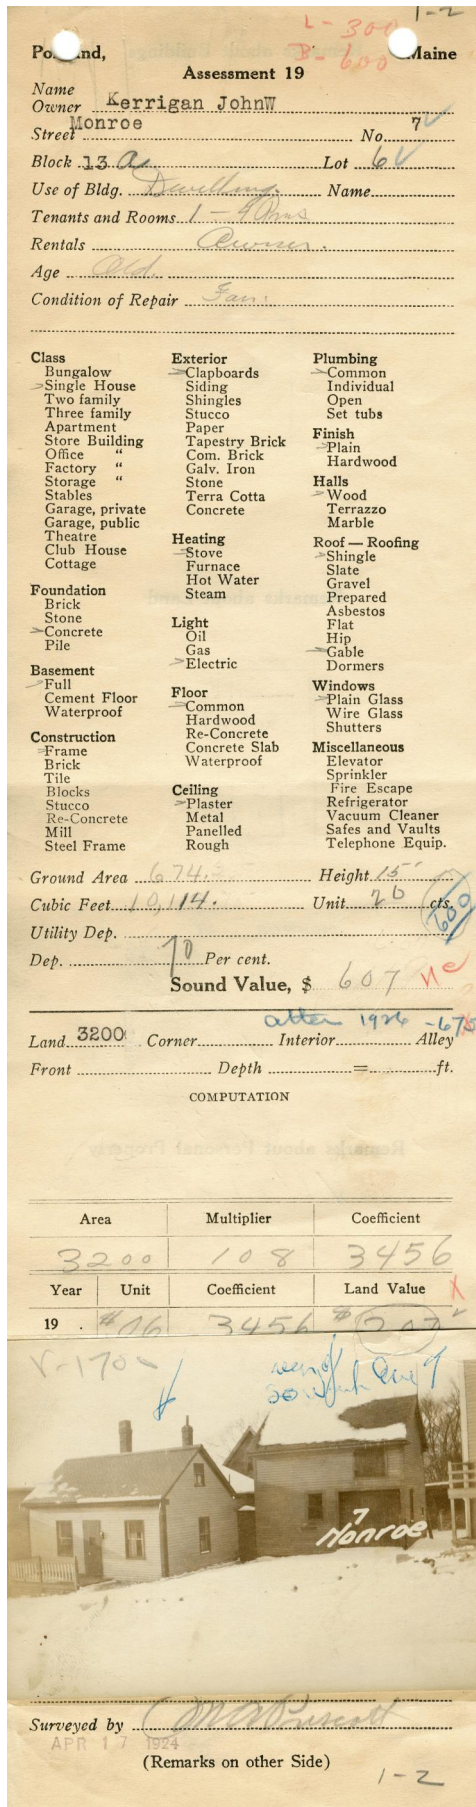 1-2
L-300
B-600
Portland, Maine
Assessment 19
Name
Owner Kerrigan JohnW
Street Monroe No. 7
Block 13 a Lot 6
Use of Bldg. Dwelling. Name
Tenants and Rooms 1 - 4 Rms
Rentals Owner.
Age Old.
Condition of Repair Fair.
Class
Bungalow
Single House
Two family
Three family
Apartment
Store Building
Office "
Factory "
Storage "
Stables
Garage, private
Garage, public
Theatre
Club House
Cottage
Foundation
Brick
Stone
Concrete
Pile
Basement
Full
Cement Floor
Waterproof
Construction
Frame
Brick
Tile
Blocks
Stucco
Re-Concrete
Mill
Steel Frame
Exterior
Clapboards
Siding
Shingles
Stucco
Paper
Tapestry Brick
Com. Brick
Galv. Iron
Stone
Terra Cotta
Concrete
Heating
Stove
Furnace
Hot Water
Steam
Light
Oil
Gas
Electric
Floor
Common
Hardwood
Re-Concrete
Concrete Slab
Waterproof
Ceiling
Plaster
Metal
Panelled
Rough
Plumbing
Common
Individual
Open
Set tubs
Finish
Plain
Hardwood
Halls
Wood
Terrazzo
Marble
Roof — Roofing
Shingle
Slate
Gravel
Prepared
Asbestos
Flat
Hip
Gable
Dormers
Windows
Plain Glass
Wire Glass
Shutters
Miscellaneous
Elevator
Sprinkler
Fire Escape
Refrigerator
Vacuum Cleaner
Safes and Vaults
Telephone Equip.
Ground Area 674. Height 15'
Cubic Feet 10,114. Unit 20 cts.
600
Utility Dep.
Dep. 70 Per cent.
Sound Value, $ 607
after 1926 -675
Land 3200 Corner Interior Alley
Front Depth = ft.
COMPUTATION
Area Multiplier Coefficient
3200 108 3456
Year Unit Coefficient Land Value
19 . $06 3456 $207
V-170
rear of
7
7
Monroe
Surveyed by
APR 17 1924
(Remarks on other Side)
1-2